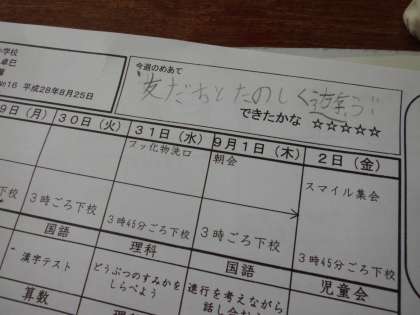 小学校
卓巳
No16 平成28年8月25日
今週のめあて
友だちとたのしく遊ぼう!!
できたかな ☆☆☆☆☆
9日(月)
30日(火)
31日(水)
9月1日(木)
2日(金)
フッ化物洗口
朝会
スマイル集会
下校
3時ごろ下校
3時45分ごろ下校
3時ごろ下校
3時45分ごろ下校
国語
理科
国語
児童会
漢字テスト
どうぶつのすみかを
しらべよう
進行を考えながら
話し合
算数